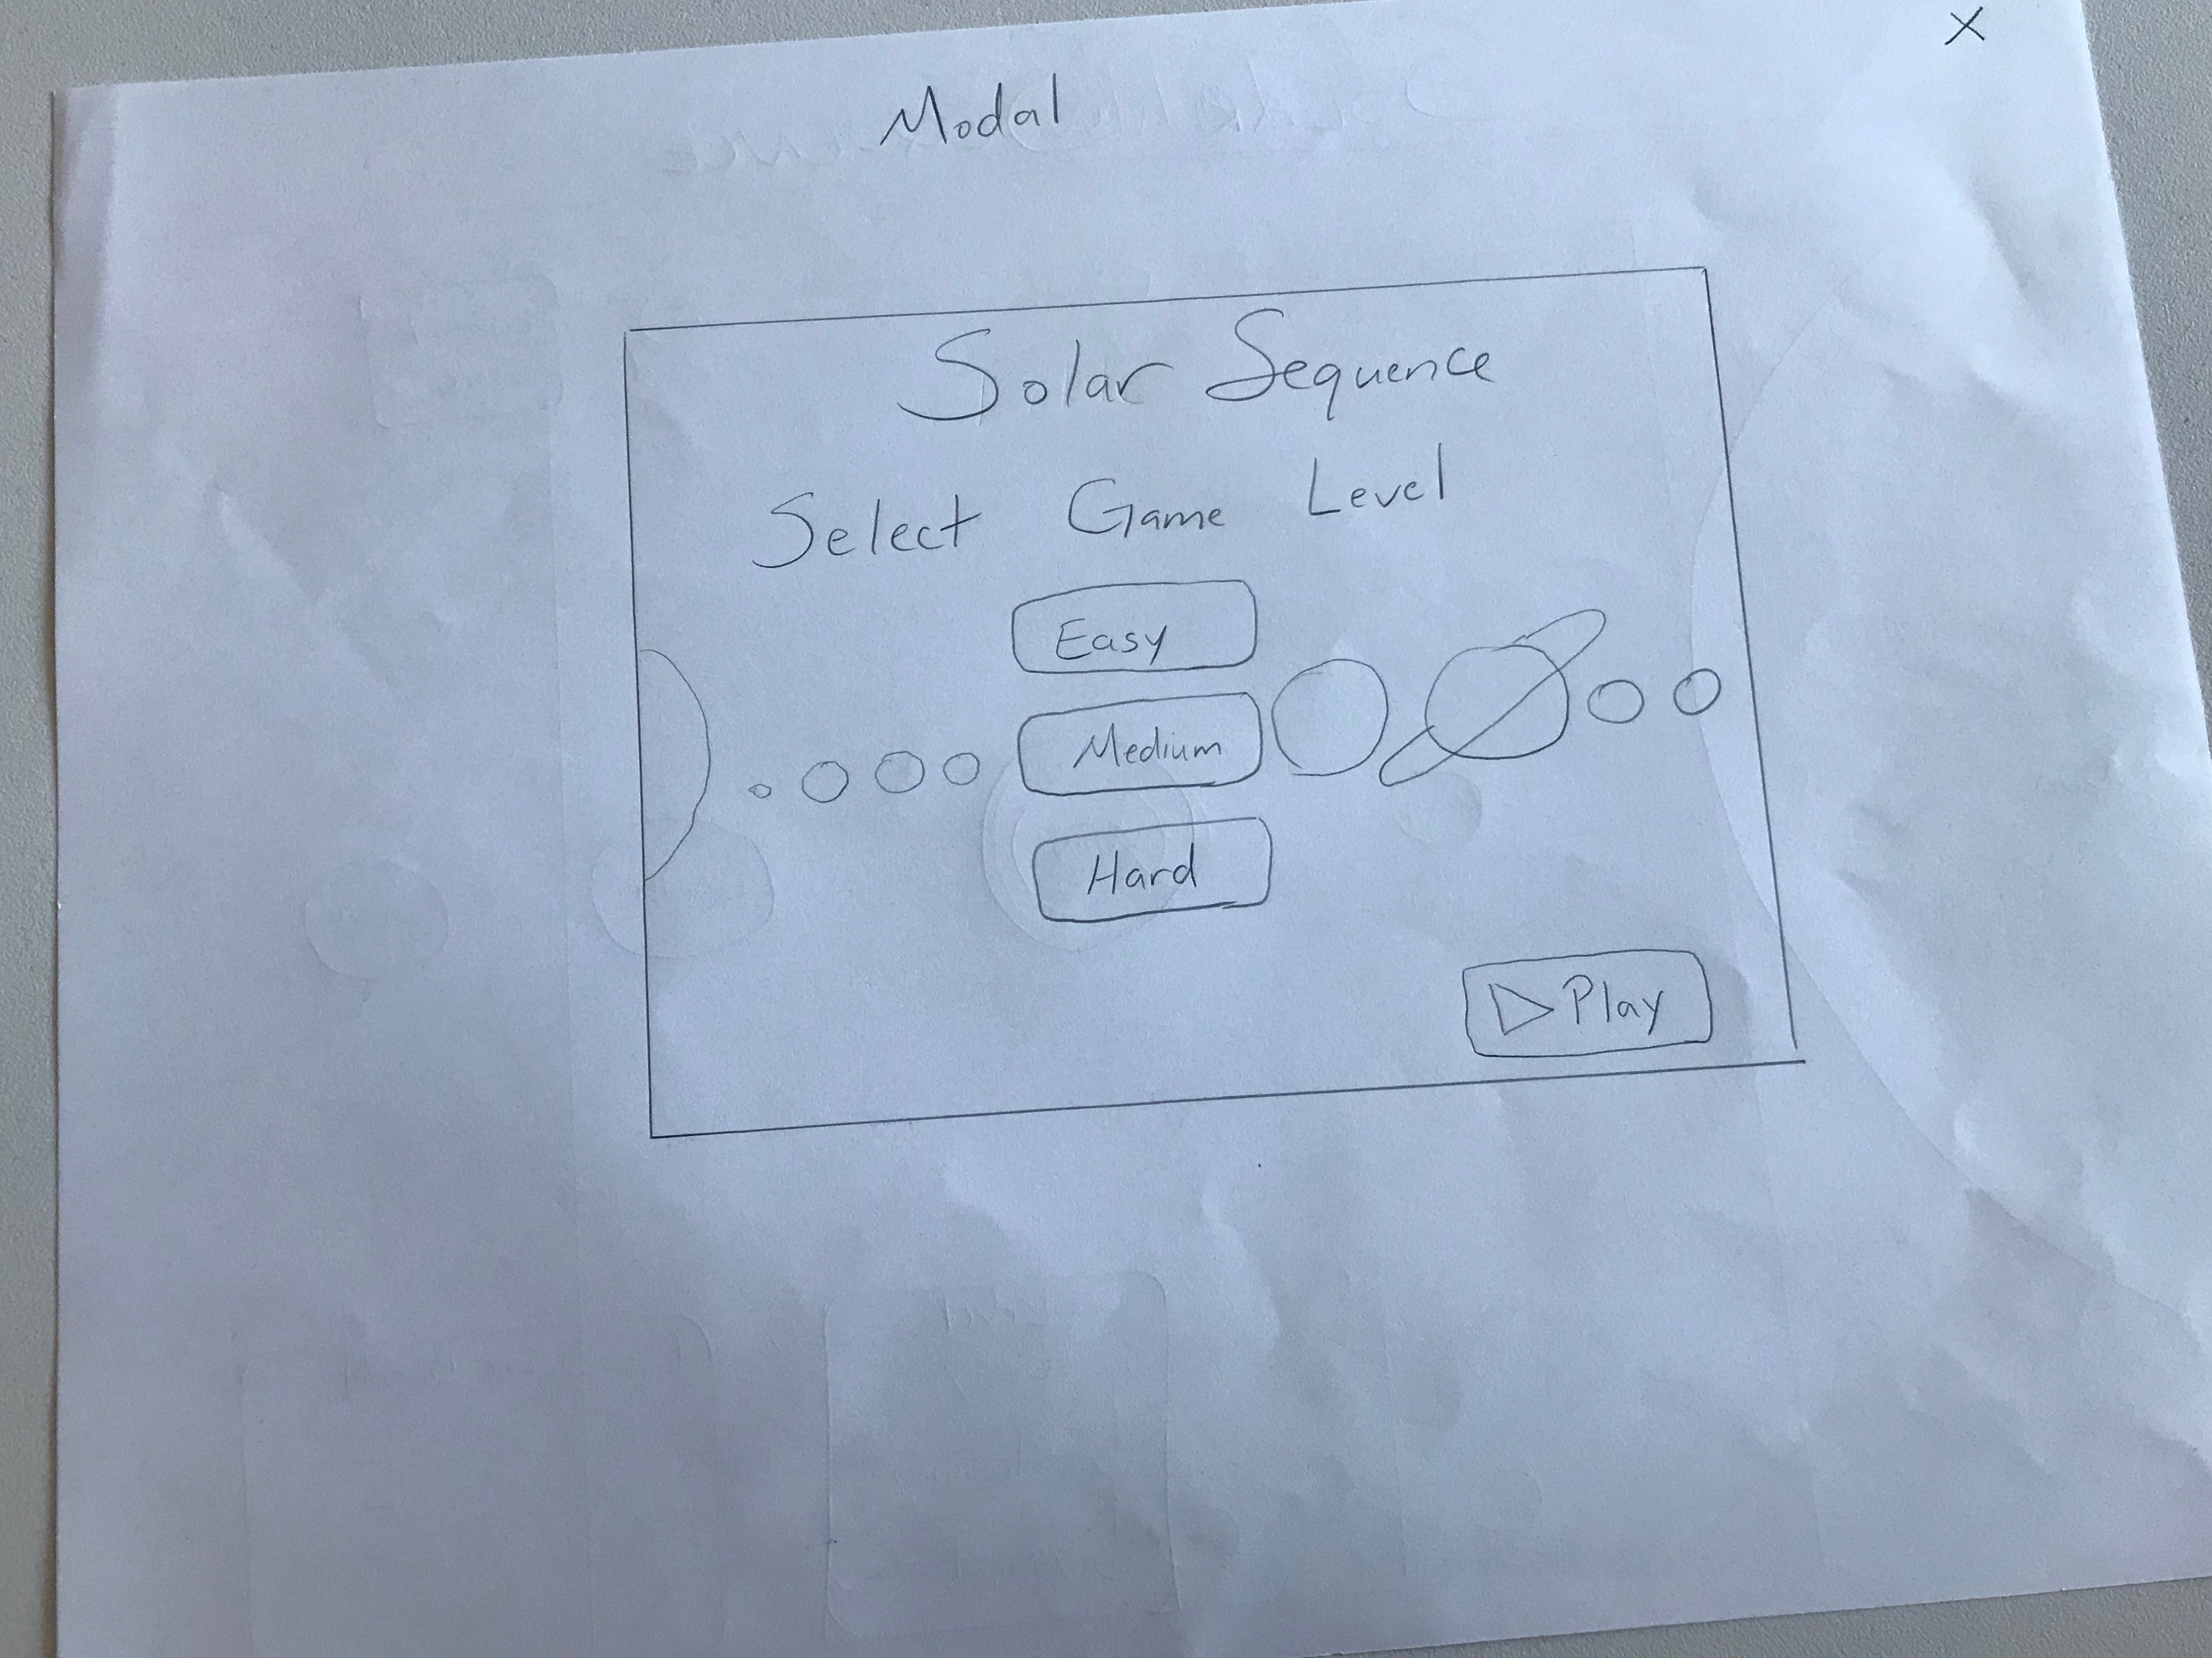 X
Modal
Solar Sequence
Select Game Level
Easy
Medium
Hard
Play